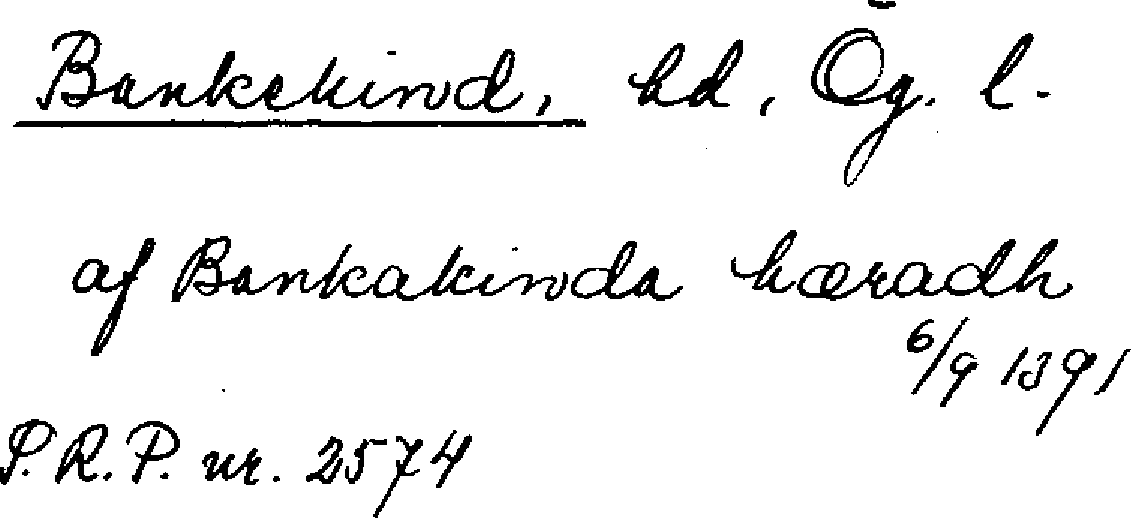 Bankekind, hd, Ög. l.
af Bankakinda hæradh
6/9 1391
S.R.P. nr. 2574